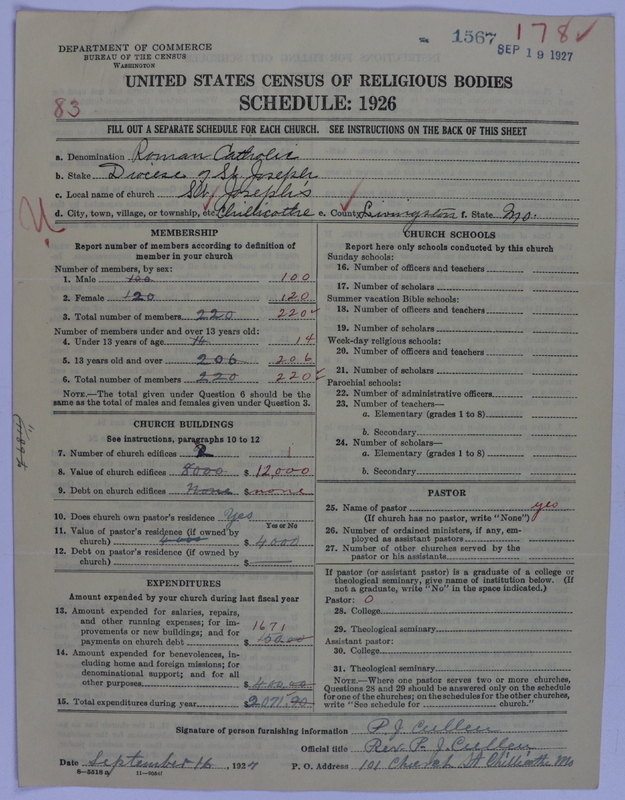 1567 178✓
SEP 19 1927
DEPARTMENT OF COMMERCE
BUREAU OF THE CENSUS
WASHINGTON
UNITED STATES CENSUS OF RELIGIOUS BODIES
SCHEDULE: 1926
83
FILL OUT A SEPARATE SCHEDULE FOR EACH CHURCH. SEE INSTRUCTIONS ON THE BACK OF THIS SHEET
a. Denomination Roman Catholic
b. Stake Diocese of St. Joseph
c. Local name of church St. Joseph's
d. City, town, village, or township, etc Chillicothe e. County Livingston f. State Mo.
MEMBERSHIP
Report number of members according to definition of
member in your church
Number of members, by sex:
1. Male 100 100
2. Female 120 120
3. Total number of members 220 220✓
Number of members under and over 13 years old:
4. Under 13 years of age 14 14
5. 13 years old and over 206 206
6. Total number of members 220 220✓
NOTE.—The total given under Question 6 should be
same as the total of males and females given under Question 3.
CHURCH BUILDINGS
See instructions, paragraphs 10 to 12
7. Number of church edifices 1
8. Value of church edifices 8000 $ 12,000
9. Debt on church edifices None $ none
10. Does church own pastor's residence Yes
Yes or No
11. Value of pastor's residence (if owned by
church) 4000 $ 4000
12. Debt on pastor's residence (if owned by
church) $
EXPENDITURES
Amount expended by your church during last fiscal year
13. Amount expended for salaries, repairs,
and other running expenses; for im-
provements or new buildings; and for
payments on church debt $ 1671
14. Amount expended for benevolences, in-
cluding home and foreign missions; for
denominational support; and for all
other purposes $ 400.00
15. Total expenditures during year $ 2071.90
CHURCH SCHOOLS
Report here only schools conducted by this church
Sunday schools:
16. Number of officers and teachers
17. Number of scholars
Summer vacation Bible schools:
18. Number of officers and teachers
19. Number of scholars
Week-day religious schools:
20. Number of officers and teachers
21. Number of scholars
Parochial schools:
22. Number of administrative officers
23. Number of teachers—
a. Elementary (grades 1 to 8)
b. Secondary
24. Number of scholars—
a. Elementary (grades 1 to 8)
b. Secondary
PASTOR
25. Name of pastor yes
(If church has no pastor, write "None")
26. Number of ordained ministers, if any, em-
ployed as assistant pastors
27. Number of other churches served by the
pastor or his assistants
If pastor (or assistant pastor) is a graduate of a college or
theological seminary, give name of institution below. (If
not a graduate, write "No" in the space indicated.)
Pastor: 0
28. College
29. Theological seminary
Assistant pastor:
30. College
31. Theological seminary
NOTE.—Where one pastor serves two or more churches,
Questions 28 and 29 should be answered only on the schedule
for one of the churches; on the schedules for the other churches,
write "See schedule for church."
Signature of person furnishing information P. J. Cullen
Official title Rev. P. J. Cullen
Date September 16, 1927 P. O. Address 101 Church St Chillicothe Mo